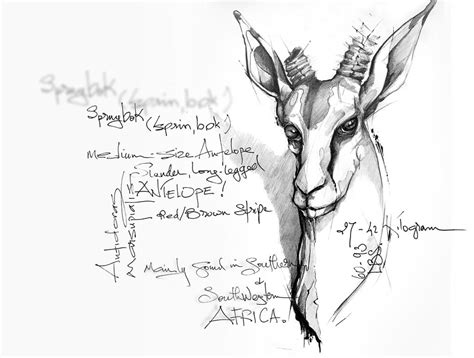 Sprybok
(sprin,bok)
Sprybok
(Sprin,bok)
Medium-Size Antelope
Slander, Long-Legged
ANTELOPE!
Red/Brown Stripe
Antidorcas
Marsupialis
Mainly found in Southern
&
SouthWestern
AFRICA!
27-42 Kilogram
60-93
LBS.